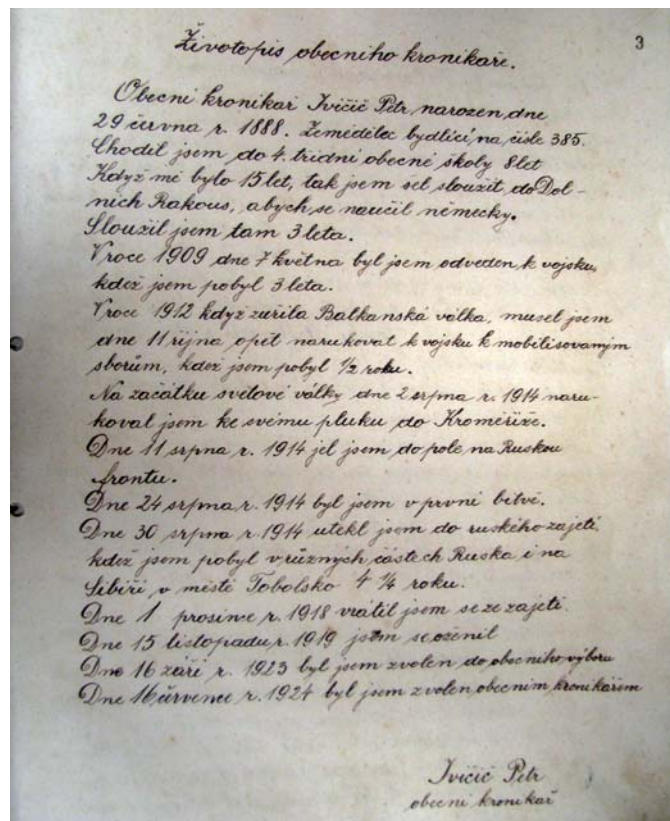 3
Životopis obecního kronikáře.
Obecní kronikář Ivičič Petr, narozen dne
29 června r. 1888. Zemědělec bydlící na čísle 385.
Chodil jsem do 4. třídní obecné školy 8 let
Když mě bylo 15 let, tak jsem šel sloužit do Dol-
ních Rakous, abych se naučil německy.
Sloužil jsem tam 3 leta.
V roce 1909 dne 7 května byl jsem odveden k vojsku,
kdež jsem pobyl 3 leta.
V roce 1912 když zuřila Balkanská válka, musel jsem
dne 11 října opět narukovat k vojsku k mobilisovaným
sborům, kdež jsem pobyl ½ roku.
Na začátku světové války dne 2 srpna r. 1914 naru-
koval jsem ke svému pluku do Kroměříže.
Dne 11 srpna r. 1914 jel jsem do pole na Ruskou
frontu.
Dne 24 srpna r. 1914 byl jsem v první bitvě.
Dne 30 srpna r. 1914 utekl jsem do ruského zajetí,
kdež jsem pobyl v různých částech Ruska i na
Sibiři v městě Tobolsko 4 ¼ roku.
Dne 1 prosince r. 1918 vrátil jsem se ze zajetí.
Dne 15 listopadu r. 1919 jsem se oženil
Dne 16 září r. 1923 byl jsem zvolen do obecního výboru
Dne 16 července r. 1924 byl jsem zvolen obecním kronikářem
Ivičič Petr
obecní kronikář